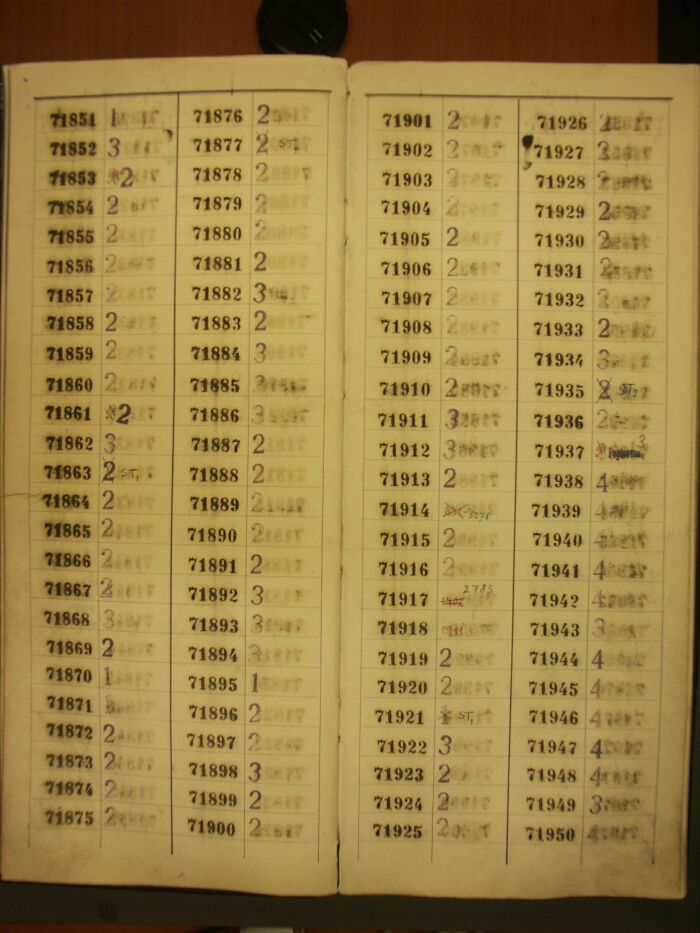 71851 1
71852 3
71853 2
71854 2
71855 2
71856 2
71857 2
71858 2
71859 2
71860 2
71861 2
71862 3
71863 2 ST,
71864 2
71865 2
71866 2
71867 2
71868 3
71869 2
71870 1
71871
71872 2
71873 2
71874 2
71875 2
71876 2
71877 2 ST,
71878 2
71879 2
71880 2
71881 2
71882 3
71883 2
71884 3
71885 3
71886 3
71887 2
71888 2
71889 2
71890 2
71891 2
71892 3
71893 3
71894 3
71895 1
71896 2
71897 2
71898 3
71899 2
71900 2
71901 2
71902 2
71903 2
71904 2
71905 2
71906 2
71907 2
71908 2
71909 2
71910 2
71911 3
71912 3
71913 2
71914
71915 2
71916 2
71917 2783
71918
71919 2
71920 2
71921 ST,
71922 3
71923 2
71924 2
71925 2
71926 2
71927 2
71928 2
71929 2
71930 2
71931 2
71932 2
71933 2
71934 3
71935 2
71936 2
71937 3
71938 4
71939 4
71940 4
71941 4
71942 4
71943 3
71944 4
71945 4
71946 4
71947 4
71948 4
71949 3
71950 4